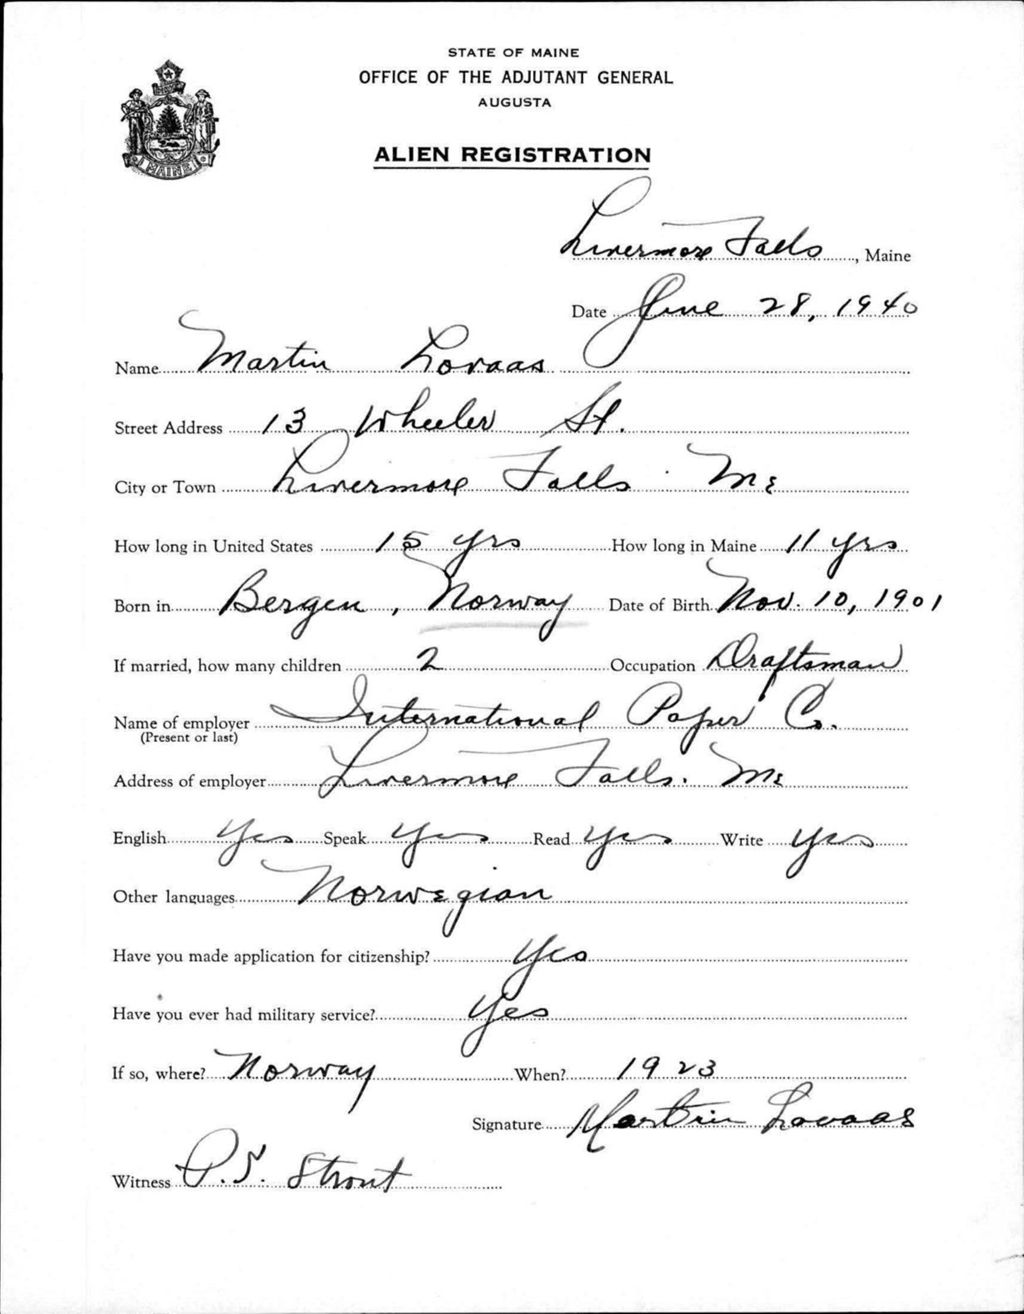 STATE OF MAINE
OFFICE OF THE ADJUTANT GENERAL
AUGUSTA
ALIEN REGISTRATION
MAINE
Livermore Falls, Maine
Date June 28, 1940
Name Martin Lovaas
Street Address 13 Wheeler St.
City or Town Livermore Falls Me
How long in United States 15 yrs How long in Maine 11 yrs
Born in Bergen, Norway Date of Birth Nov. 10, 1901
If married, how many children 2 Occupation Draftsman
Name of employer International Paper Co.
(Present or last)
Address of employer Livermore Falls. Me
English Yes Speak Yes Read Yes Write Yes
Other languages Norwegian
Have you made application for citizenship? Yes
Have you ever had military service? Yes
If so, where? Norway When? 1923
Signature Martin Lovaas
Witness P.S. Strout